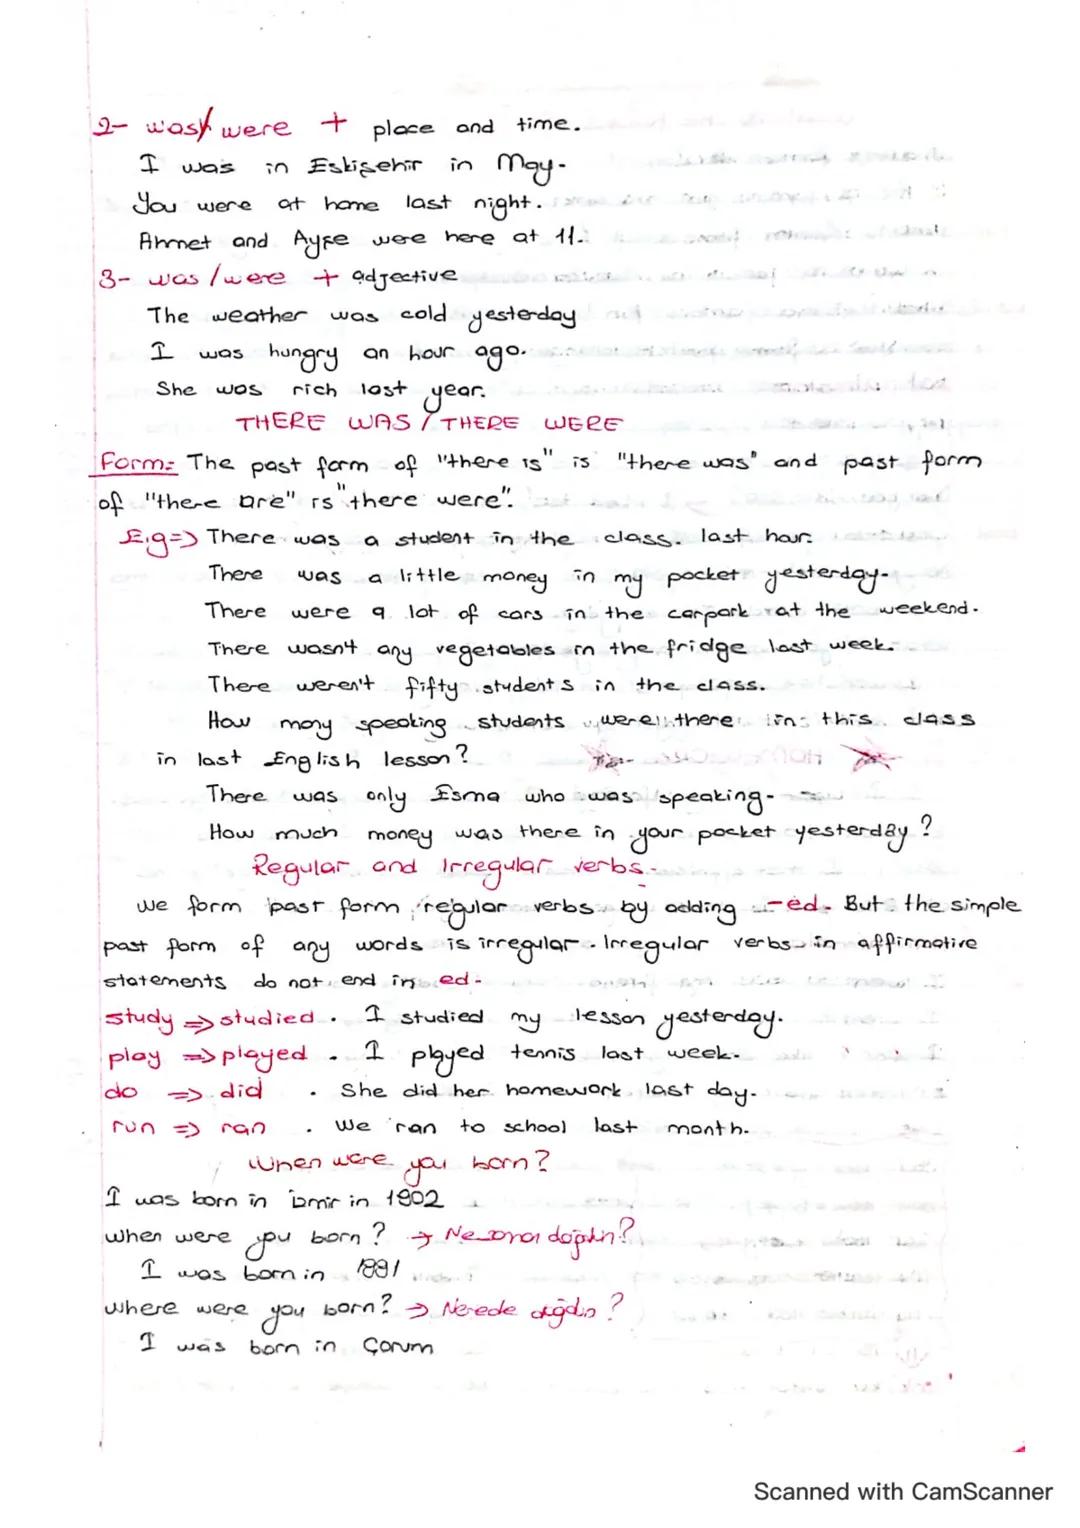 2- was/ were + place and time.
I was in Eskişehir in May.
You were at home last night.
Ahmet and Ayşe were here at 11.
3- was / were + adjective
The weather was cold yesterday
I was hungry an hour ago.
She was rich last year.
THERE WAS / THERE WERE
Form: The past form of "there is" is "there was" and past form
of "there are" is "there were".
E.g=> There was a student in the class. last hour.
There was a little money in my pocket yesterday.
There were a lot of cars in the carpark at the weekend.
There wasn't any vegetables in the fridge last week.
There weren't fifty students in the class.
How many speaking students were there in this class
in last English lesson?
There was only Esma who was speaking.
How much money was there in your pocket yesterday?
Regular and Irregular verbs.
We form past form regular verbs by adding -ed. But the simple
past form of any words is irregular. Irregular verbs in affirmative
statements do not end in ed.
study => studied. I studied my lesson yesterday.
play => played. I played tennis last week.
do => did. She did her homework last day.
run => ran. We ran to school last month.
When were you born?
I was born in İzmir in 1902
When were you born? → Ne zaman doğdun?
I was born in 1881
Where were you born? → Nerede doğdun?
I was born in Çorum
Scanned with CamScanner